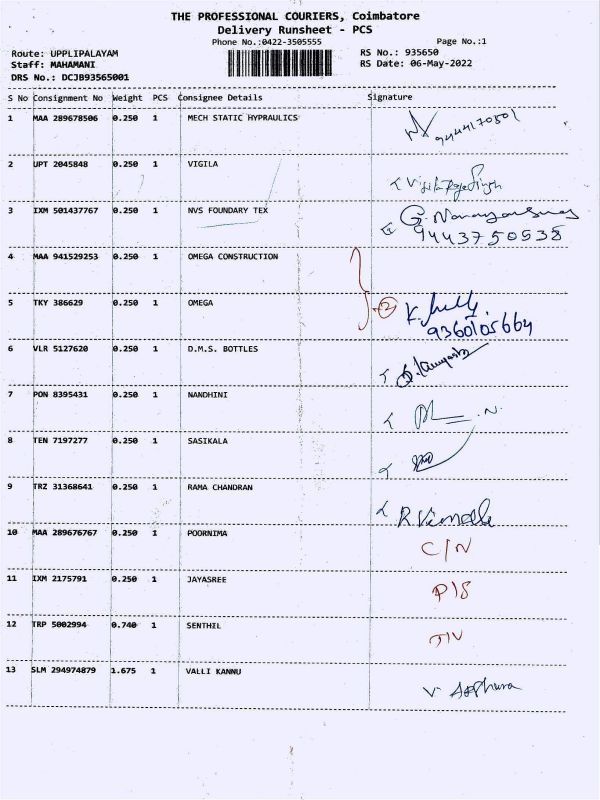 THE PROFESSIONAL COURIERS, Coimbatore
Delivery Runsheet - PCS
Phone No.:0422-3505555 Page No.:1
Route: UPPLIPALAYAM RS No.: 935650
Staff: MAHAMANI RS Date: 06-May-2022
DRS No.: DCJB93565001
S No Consignment No Weight PCS Consignee Details Signature
1 MAA 289678506 0.250 1 MECH STATIC HYPRAULICS 9444170501
2 UPT 2045848 0.250 1 VIGILA
3 IXM 501437767 0.250 1 NVS FOUNDARY TEX G.
9443750538
4 MAA 941529253 0.250 1 OMEGA CONSTRUCTION
5 TKY 386629 0.250 1 OMEGA 2 K.
9360105664
6 VLR 5127620 0.250 1 D.M.S. BOTTLES
7 PON 8395431 0.250 1 NANDHINI N.
8 TEN 7197277 0.250 1 SASIKALA
9 TRZ 31368641 0.250 1 RAMA CHANDRAN R.
10 MAA 289676767 0.250 1 POORNIMA C/N
11 IXM 2175791 0.250 1 JAYASREE
12 TRP 5002994 0.740 1 SENTHIL
13 SLM 294974879 1.675 1 VALLI KANNU V